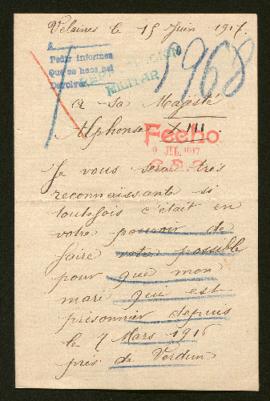 Velaines le 15 Juin 1917.
A
Pedir informes
Que se haga
Devolver
MILITAR
1968
A Sa Majesté
Alphonse XIII
Fecho
9 JUL. 1917
Je vous serai très
reconnaissante si
toutefois c'était en
votre pouvoir de
faire votre possible
pour que mon
mari qui est
prisonnier depuis
le 7 Mars 1916
près de Verdun